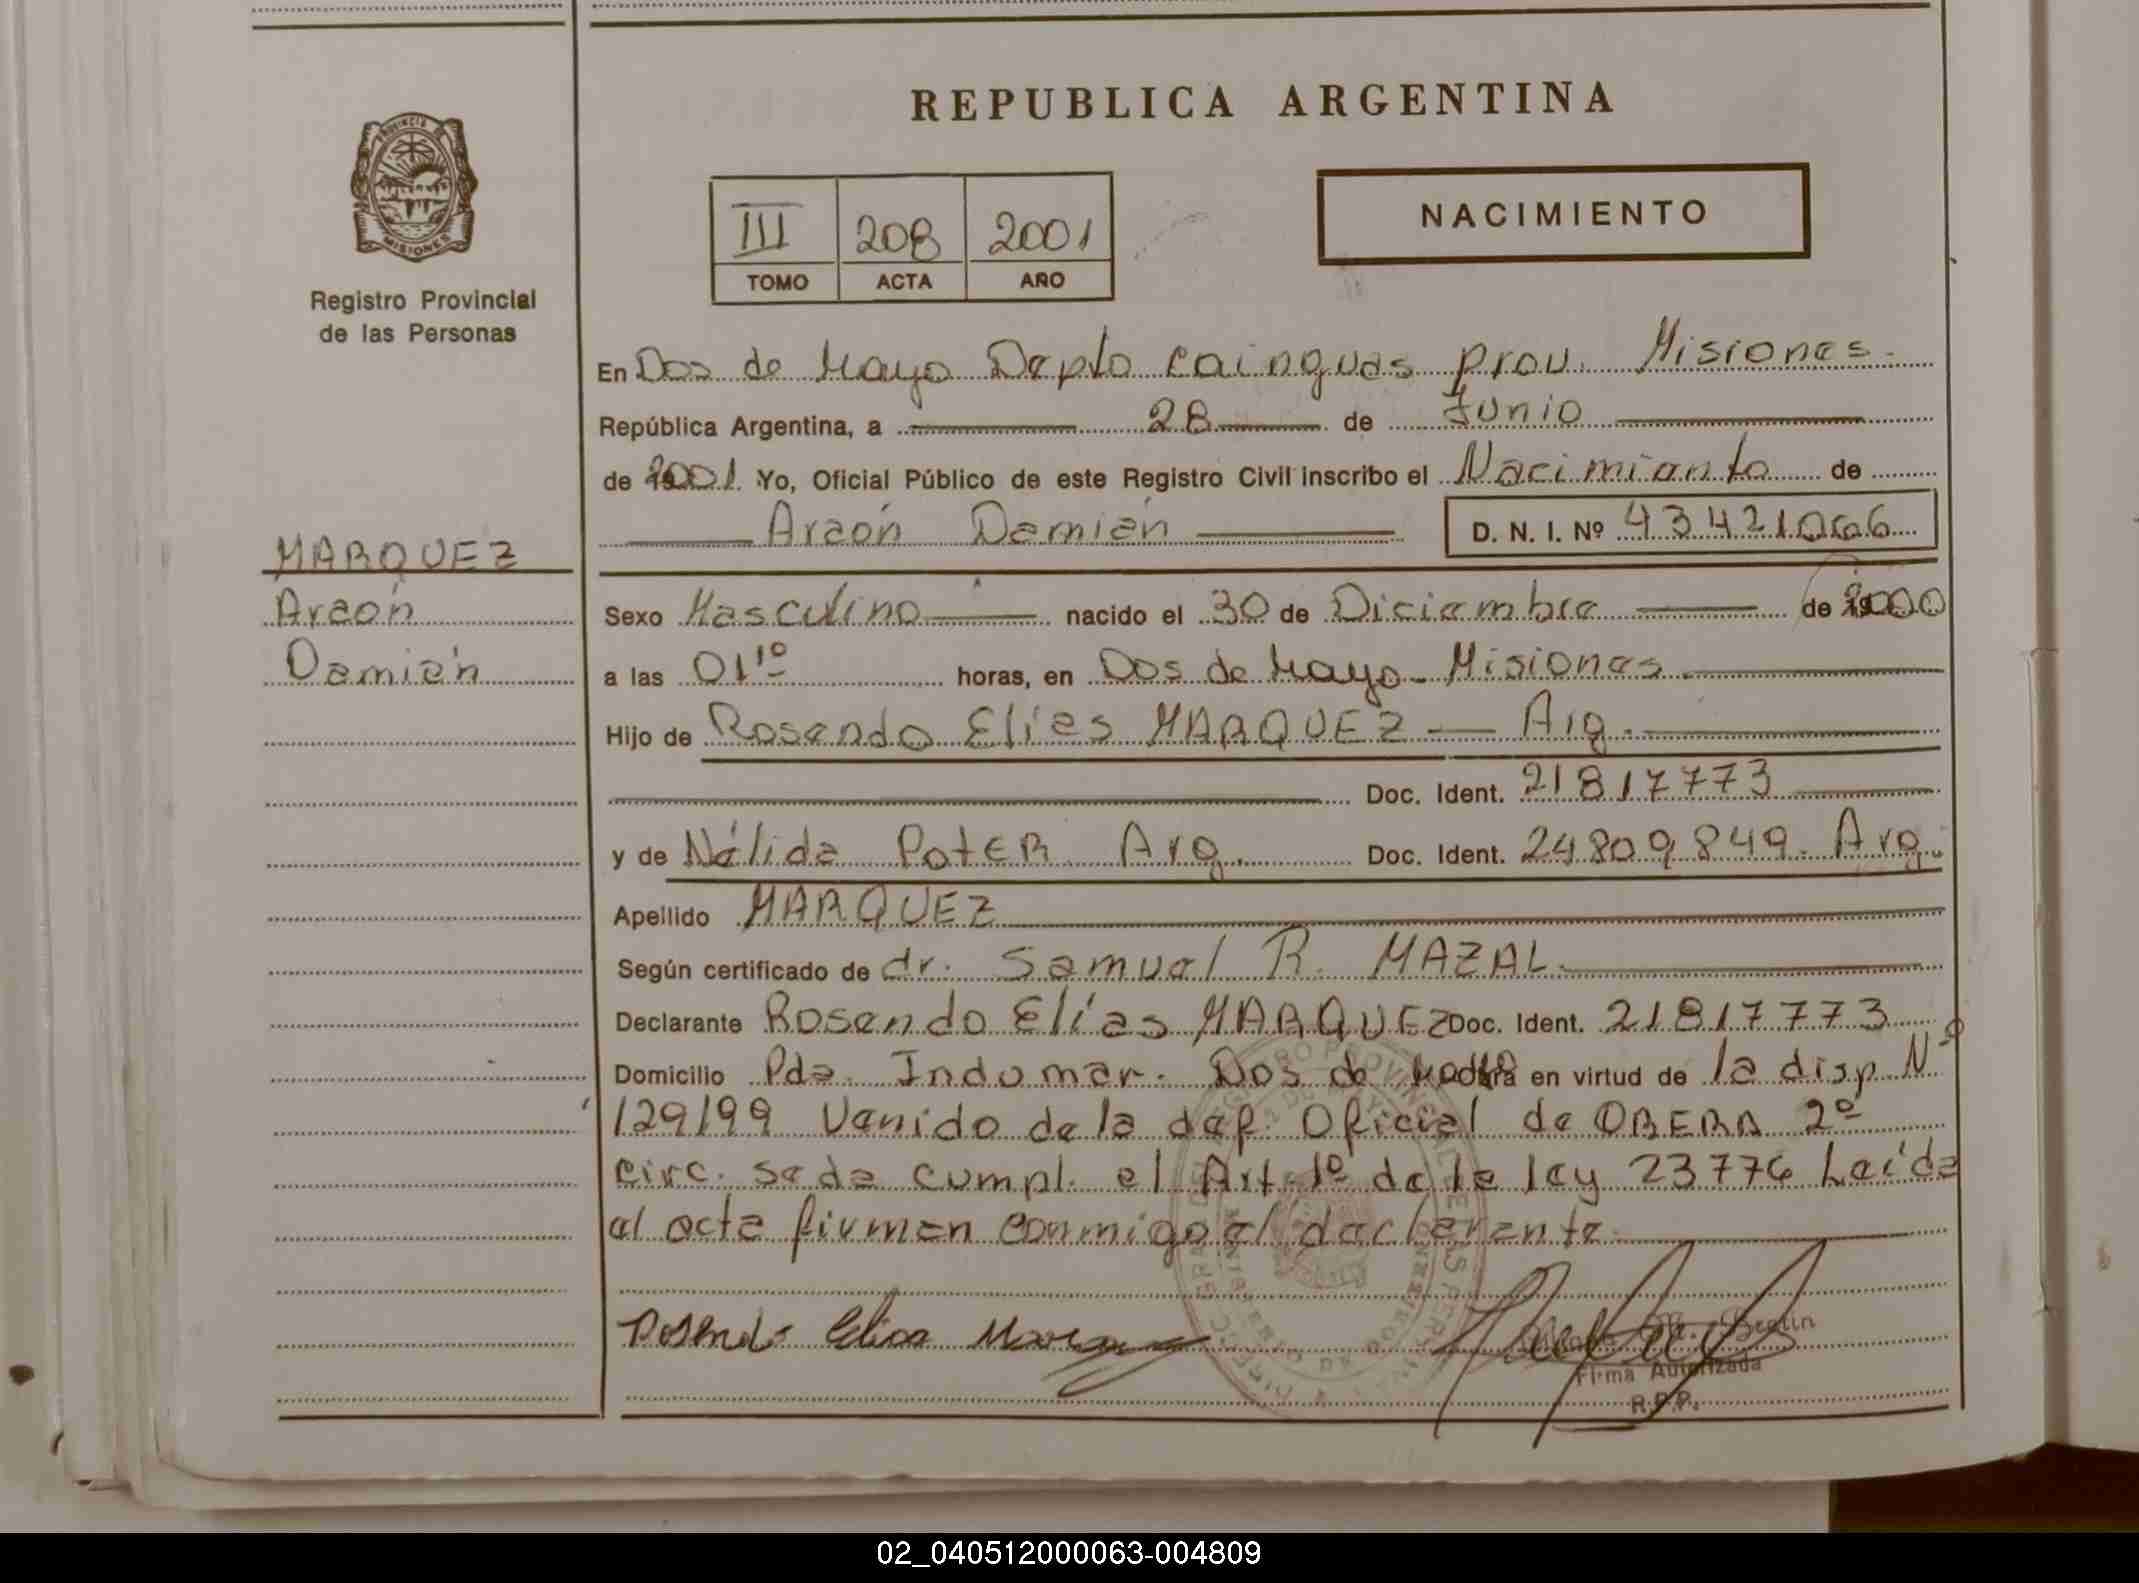 REPUBLICA ARGENTINA
PROVINCIA DE
MISIONES
Registro Provincial
de las Personas
III 208 2001
TOMO ACTA AÑO
NACIMIENTO
En Dos de Mayo Depto Cainguas prov. Misiones.
República Argentina, a 28 de Junio
de 2001. Yo, Oficial Público de este Registro Civil inscribo el Nacimiento de
Araón Damián D. N. I. Nº 43421066
MARQUEZ
Araón
Damián
Sexo Masculino nacido el 30 de Diciembre de 2000
a las 01¹⁰ horas, en Dos de Mayo - Misiones
Hijo de Rosendo Elías MARQUEZ — Arg.
Doc. Ident. 21817773
y de Nélida Poter Arg. Doc. Ident. 24809849. Arg.
Apellido MARQUEZ
Según certificado de dr. Samuel R. MAZAL
Declarante Rosendo Elías MARQUEZ Doc. Ident. 21817773
Domicilio Pda. Indumar. Dos de Mayo en virtud de la disp Nº
129/99 Venido de la dep. Oficial de OBERA 2º
circ. se da cumpl. el Art. 1º de la ley 23776 Leída
el acta firman conmigo el declarante.
Rosendo Elias Marquez
Firma Autorizada
R.P.P.
02_040512000063-004809